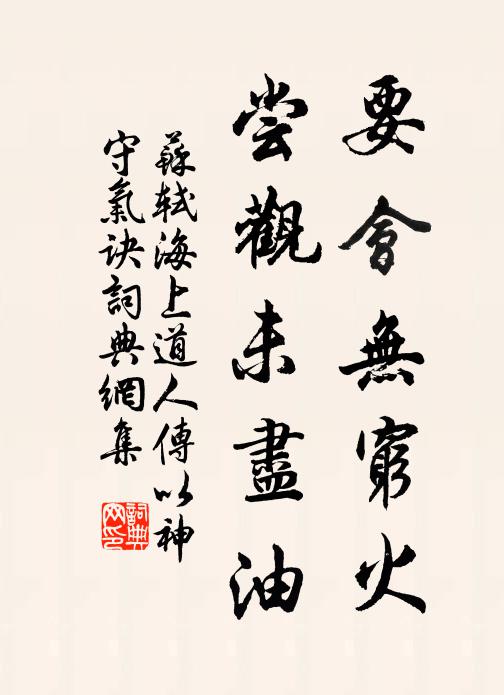 要會無窮火
嘗觀未盡油
蘇軾海上道人傳以神
守氣诀詞典網集
詞典
网印